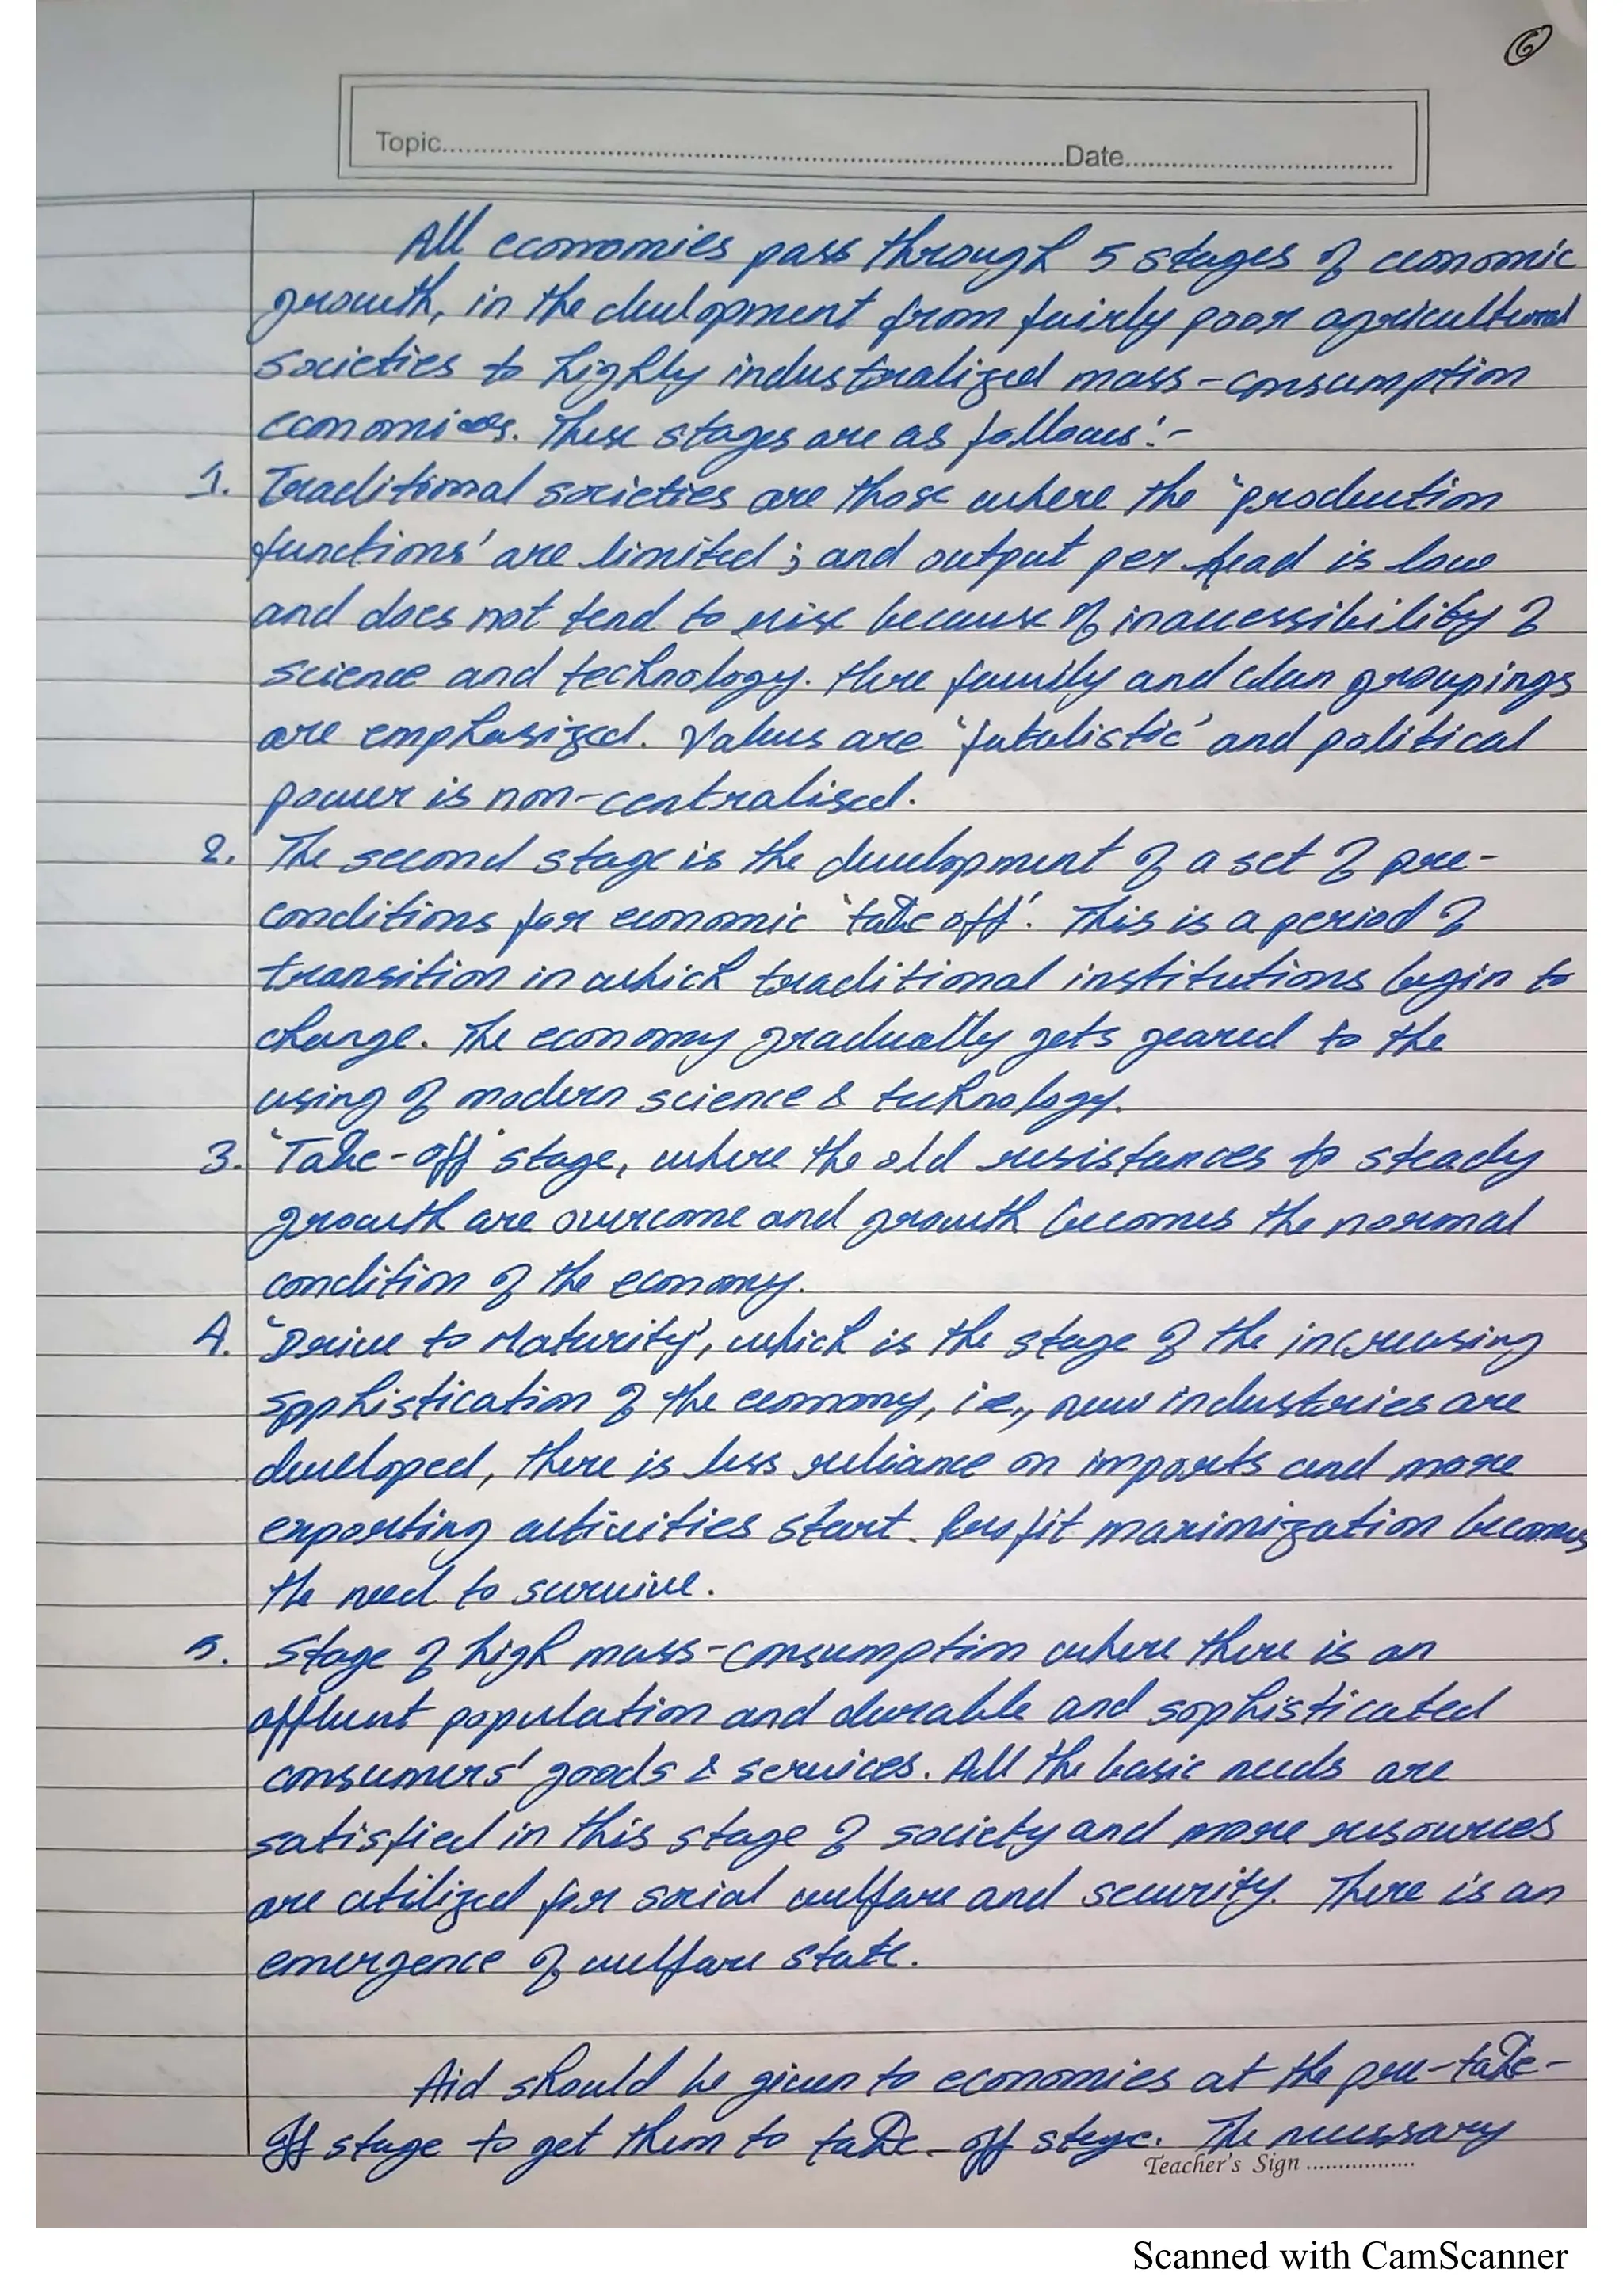 6
Topic.................Date.................
All economies pass through 5 stages of economic
growth, in the development from fairly poor agricultural
societies to highly industralized mass-consumption
economies. These stages are as follows:-
1. Traditional societies are those where the 'production
functions' are limited; and output per head is low
and does not tend to rise because of inaccessibility of
science and technology. Here family and clan groupings
are emphasized. Values are 'fatalistic' and political
power is non-centralised.
2. The second stage is the development of a set of pre-
conditions for economic 'take off'. This is a period of
transition in which traditional institutions begin to
change. The economy gradually gets geared to the
using of modern science & technology.
3. 'Take-off' stage, where the old resistances to steady
growth are overcome and growth becomes the normal
condition of the economy.
4. 'Drive to Maturity', which is the stage of the increasing
sophistication of the economy, i.e., new industries are
developed, there is less reliance on imports and more
exporting activities start. Profit maximization becomes
the need to survive.
5. Stage of high mass-consumption where there is an
affluent population and durable and sophisticated
consumers' goods & services. All the basic needs are
satisfied in this stage of society and more resources
are utilized for social welfare and security. There is an
emergence of welfare state.
Aid should be given to economies at the pre-take-
off stage to get them to take-off stage. The necessary
Teacher's Sign .................
Scanned with CamScanner